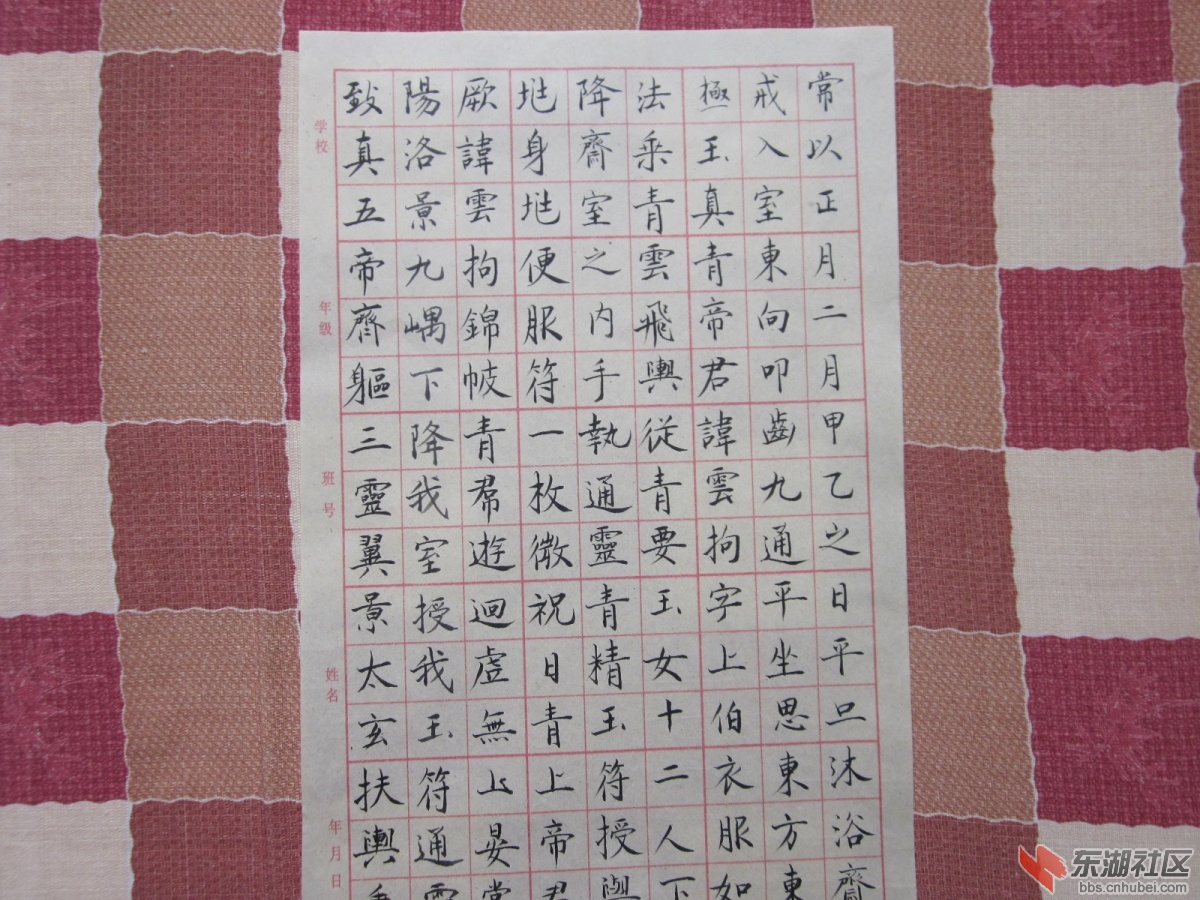 常以正月二月甲乙之日平旦沐浴齋
戒入室東向叩齒九通平坐思東方東
極玉真青帝君諱雲拘字上伯衣服如
法乗青雲飛輿從青要玉女十二人下
降齋室之内手執通靈青精玉符授與
兆身兆便服符一枚微祝曰青上帝君
厥諱雲拘錦帔青帬遊迴虛無上晏常
陽洛景九嵎下降我室授我玉符通靈
致真五帝齊軀三靈翼景太玄扶輿
学校
年级
班号
姓名
年月日
东湖社区
bbs.cnhubei.com